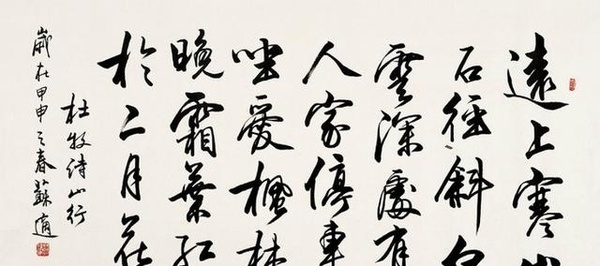 遠上寒山
石径斜白
雲深處有
人家停車
坐愛楓林
晚霜葉紅
於二月花
杜牧诗山行
歲在甲申之春蘇適